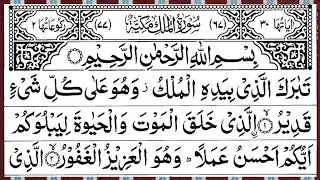 اٰيَاتُهَا ٣٠ (٦٧) سُوْرَةُ الْمُلْكِ مَكِّيَّةٌ (٧٧) رُكُوْعَاتُهَا ٢
بِسْمِ اللّٰهِ الرَّحْمٰنِ الرَّحِيْمِ
تَبٰرَكَ الَّذِيْ بِيَدِهِ الْمُلْكُ ز وَهُوَ عَلٰى كُلِّ شَيْءٍ
قَدِيْرُ ۙ﴿١﴾ اِلَّذِيْ خَلَقَ الْمَوْتَ وَالْحَيٰوةَ لِيَبْلُوَكُمْ
اَيُّكُمْ اَحْسَنُ عَمَلًا ؕ وَهُوَ الْعَزِيْزُ الْغَفُوْرُ ۙ﴿٢﴾ الَّذِيْ